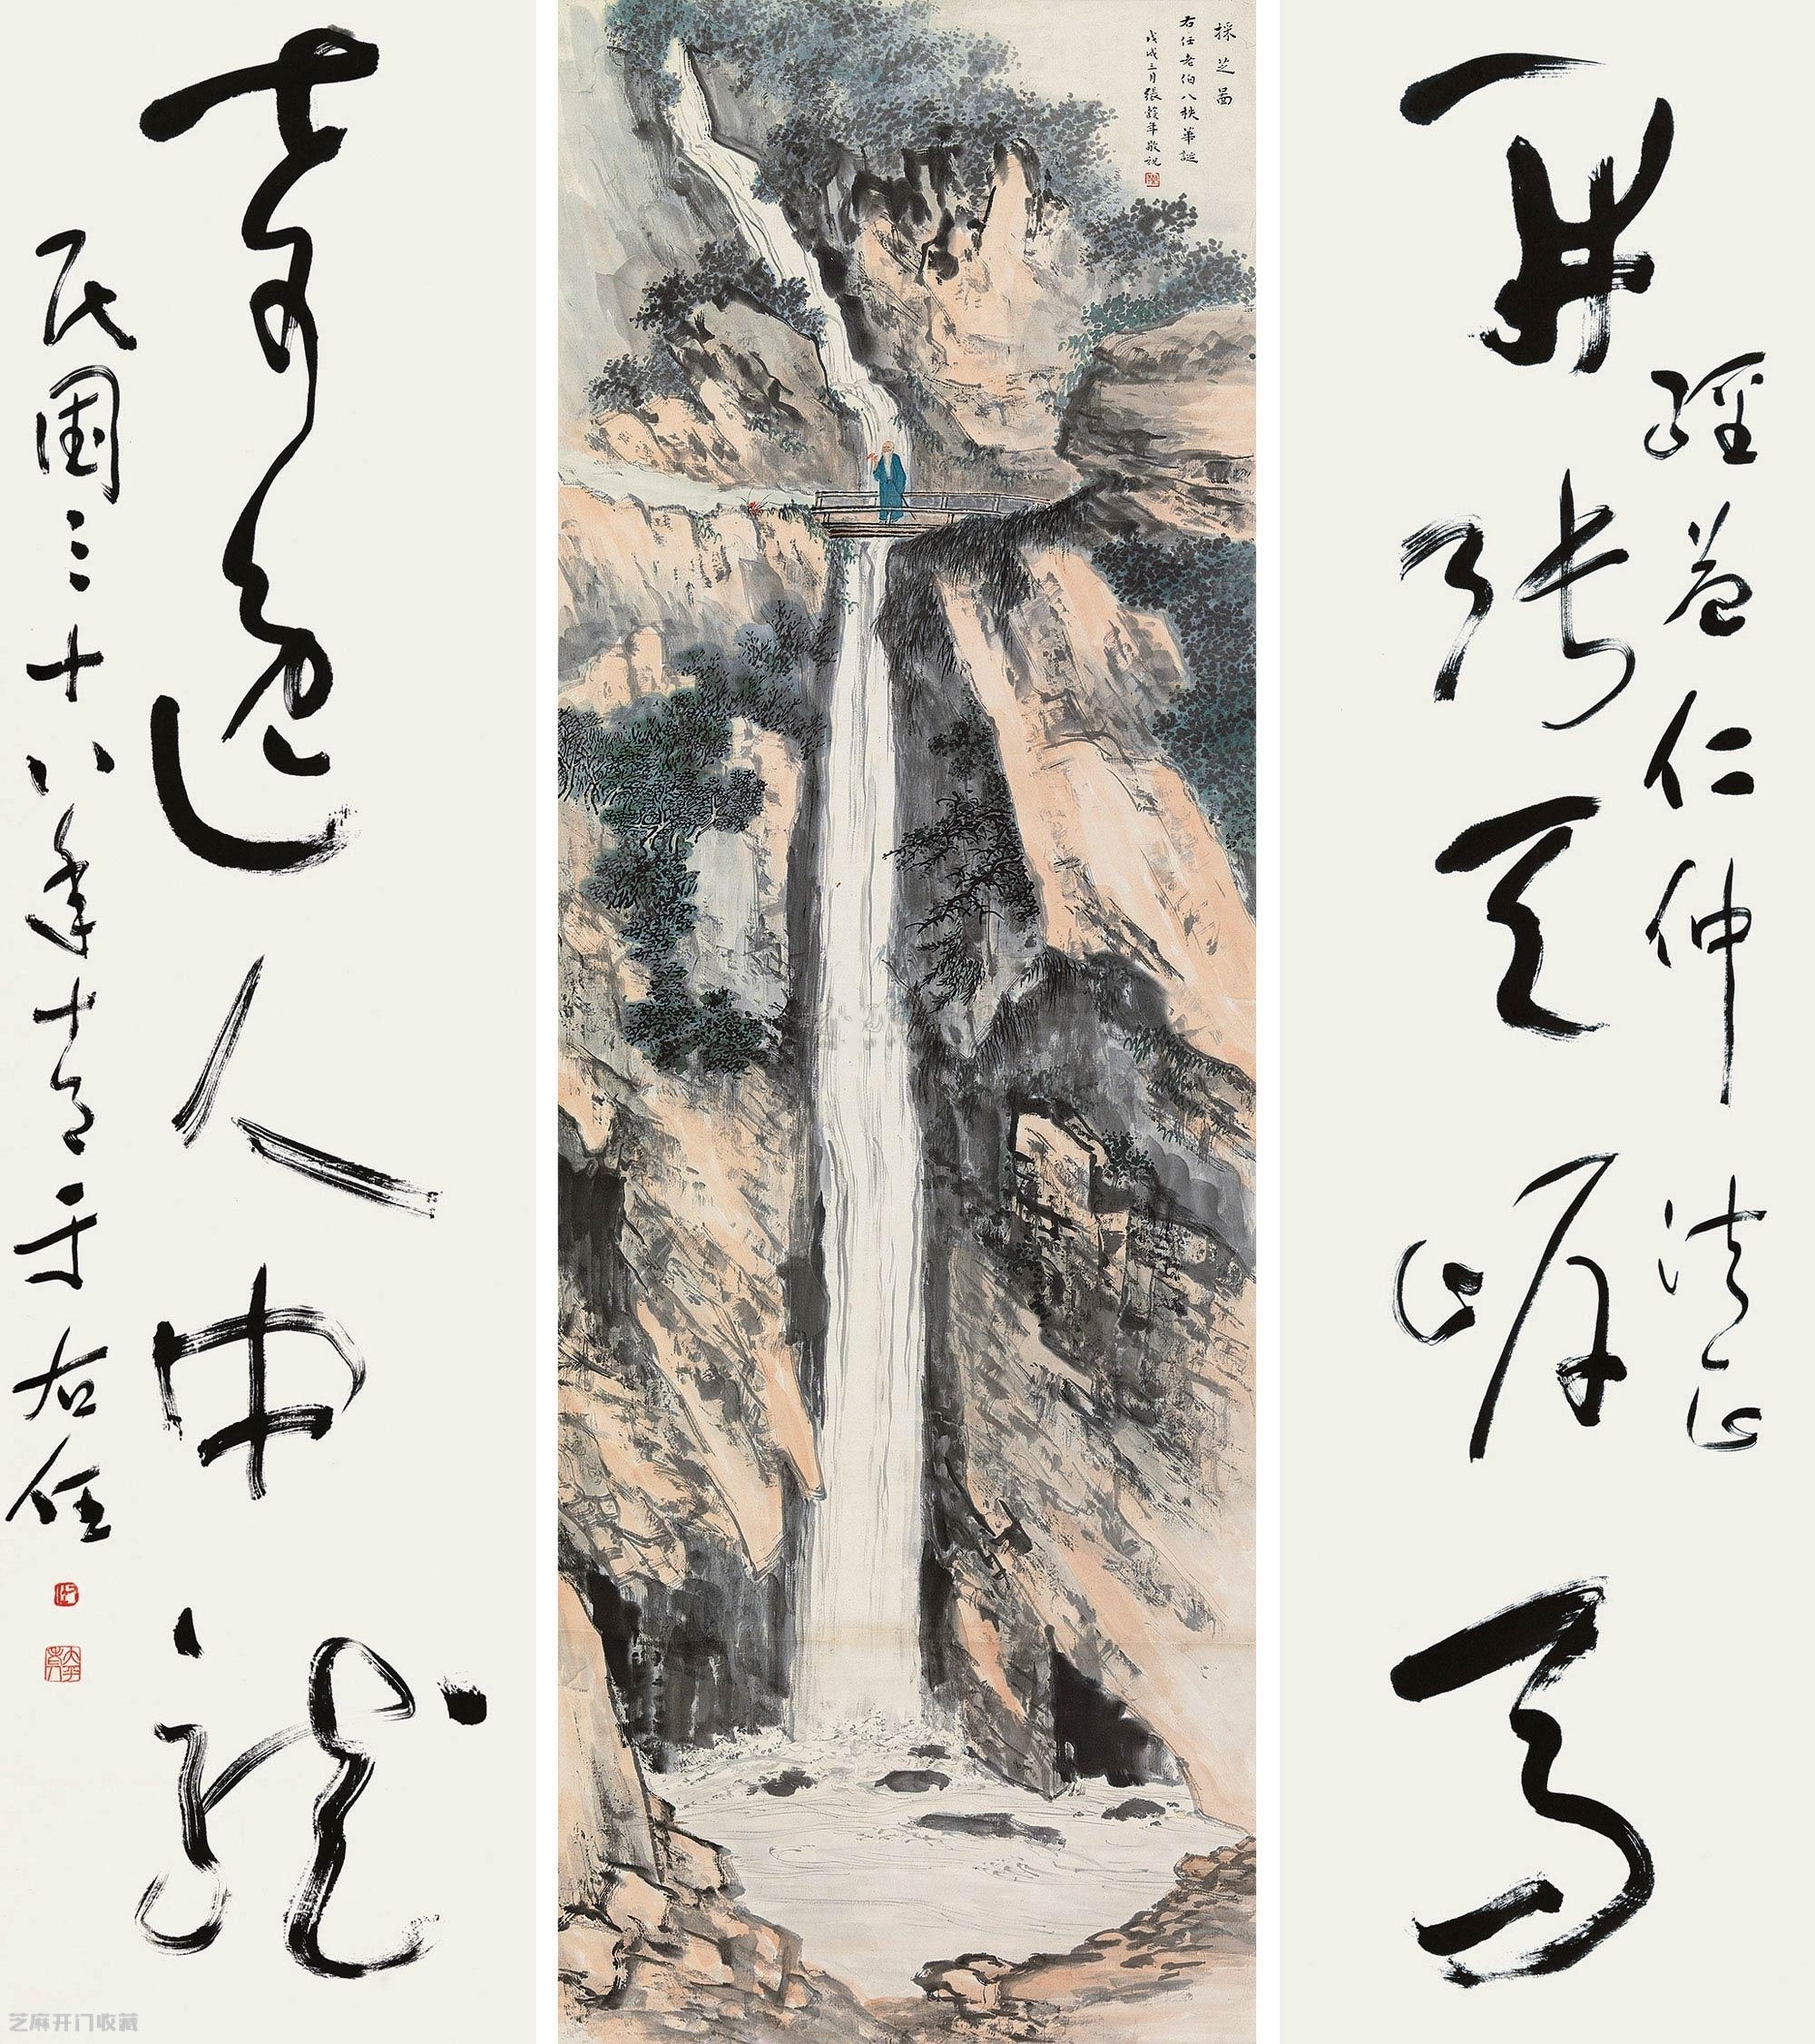 開張天岸馬
經益仁仲 法正
採芝圖
右任老伯八秩華誕
戊戌三月張穀年敬祝
奇逸人中龍
民国三十八年十 于右任
芝麻开门收藏